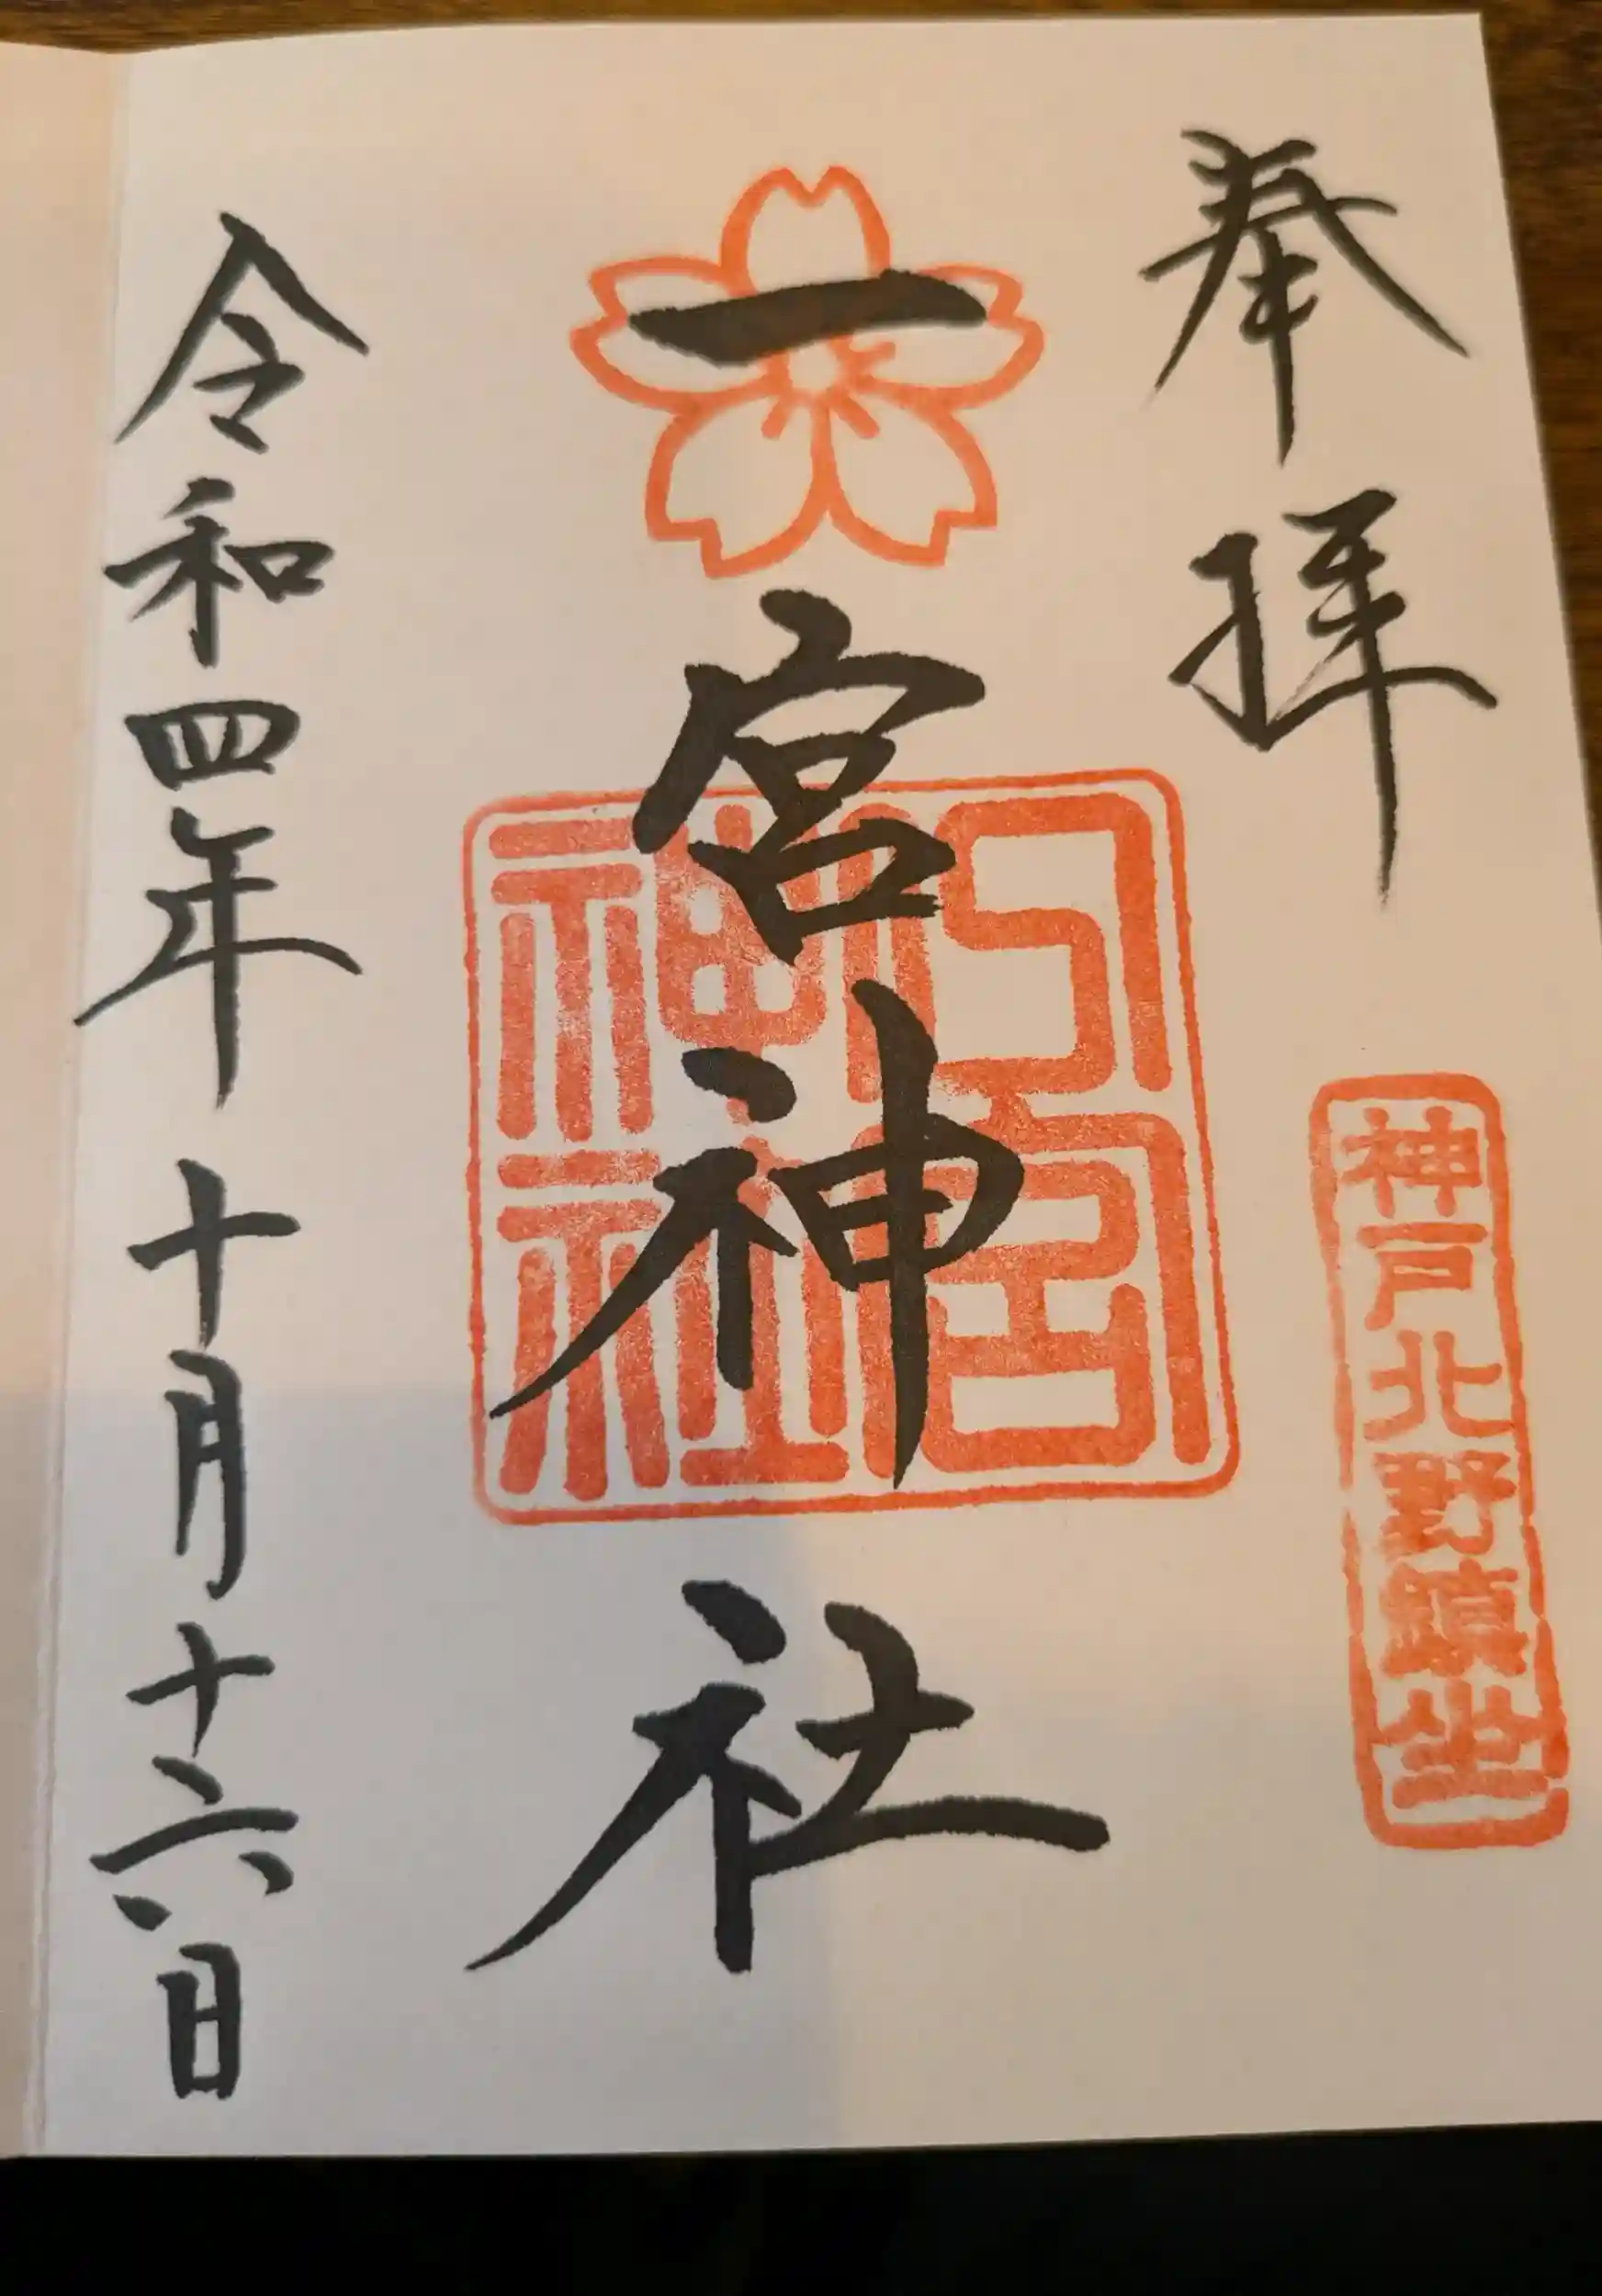 奉拝
神戸北野鎮坐
一宮神社
令和四年十月十六日